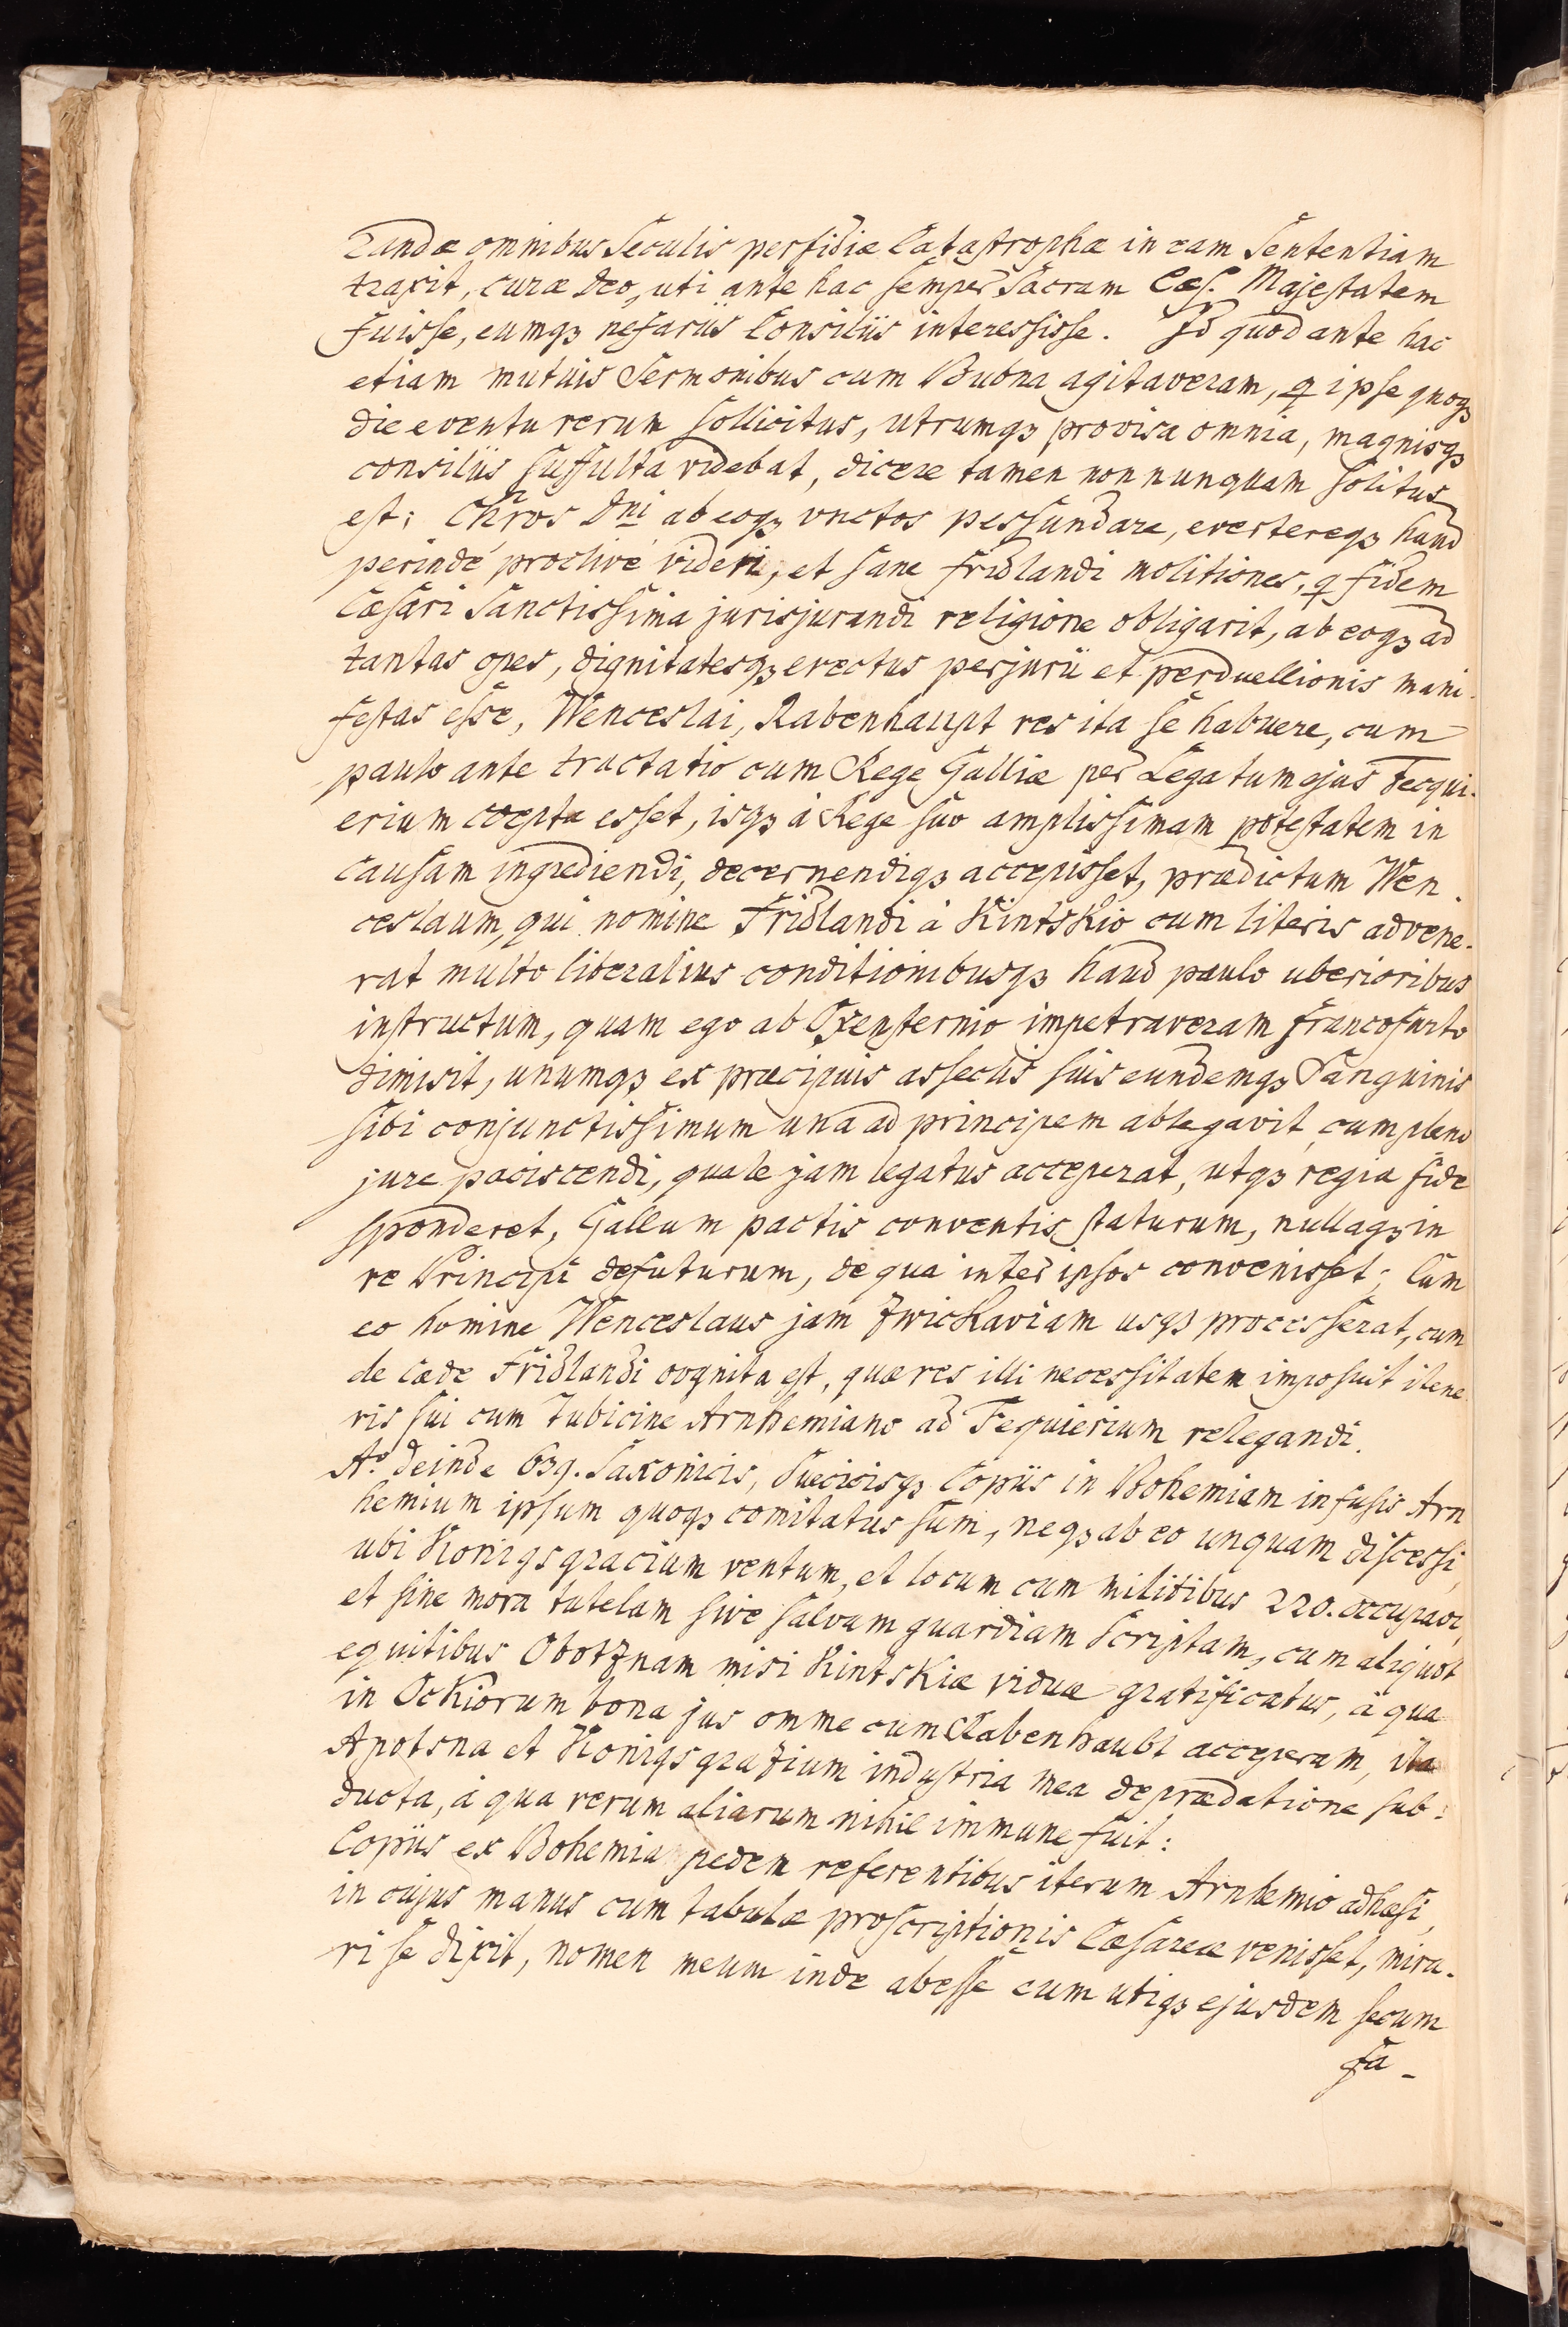 randæ omnibus Seculis perfidiæ Catastrophæ in eam Sententiam
traxit, curæ Deo, uti ante hac semper Sacram Cæs. Majestatem
fuisse, eumqꝫ nefariis Consiliis interessisse. Id quod ante hac
etiam mutuis Sermonibus cum Bubna agitaveram, ꝗ ipse quoqꝫ
die eventu rerum sollicitus, utrumqꝫ provisa omnia, magnisqꝫ
consiliis suffulta videbat, dicere tamen non nunquam solitus
est: Chr̃os Dni ab eoqꝫ unctos pessundare, evertereqꝫ haud
perinde proclive videri, et sane Fridlandi molitiones, ꝗ fidem
Cæsari Sanctissima jurisjurandi religione obligarit, ab eoqꝫ ad
tantas opes, dignitatesqꝫ evectus perjurii et perduellionis mani-
festas esse, Wenceslai, Rabenhaupt res ita se habuere, cum
paulo ante tractatio cum Rege Galliæ per Legatum ejus Fequi-
erium coepta esset, isqꝫ à Rege suo amplissimam potestatem in
causam ingrediendi, decernendiqꝫ accepisset, prædictum Wen
ceslaum, qui nomine Fridlandi à Kintskio cum literis advene-
rat multo liberalius conditionibusqꝫ haud paulo uberioribus
instructum, quam ego ab Oxensternio impetraveram Francofurto
dimisit, unumqꝫ ex præcipuis asseclis suis eundemqꝫ Sanguinis
sibi conjunctissimum una ad principem ablegavit cum pleno
jure paciscendi, quale jam legatus acceperat, utqꝫ regia fide
sponderet, Gallum pactis conventis staturum, nullaqꝫ in
re Principi defuturum, de qua inter ipsos convenisset; Cum
eo homine Wenceslaus jam Zwickaviam usqꝫ processerat, cum
de cæde Fridlandi cognita est, quæ res illi necessitatem imposuit itene
ris sui cum Tubicine Arnhemiano ad Fequierium relegandi.
Aº. deinde 639. Saxonicis, Suecicisqꝫ Copiis in Bohemiam infusis Arn
hemium ipsum quoqꝫ comitatus sum, neqꝫ ab eo unquam discessi,
ubi Konigsgracium ventum, et locum cum militibus 220. occupavi,
et sine mora tutelam sive salvam guardiam Scriptam, cum aliquot
equitibus Obotznam misi Kintskiæ viduæ gratificatus, à qua
in Ockiorum bona jus omne cum Rabenhaubt acceperam, ita
Apotsna et Konigsgrazium industria mea deprædatione sub:
ducta, à qua rerum aliarum nihil immune fuit:
Copiis ex Bohemia pedem referentibus iterum Arnhemio adhæsi,
in cujus manus cum tabulæ proscriptionis Cæsareæ venisset, mira-
ri se dixit, nomen meum inde abesse cum utiqꝫ ejusdem secum
fa-